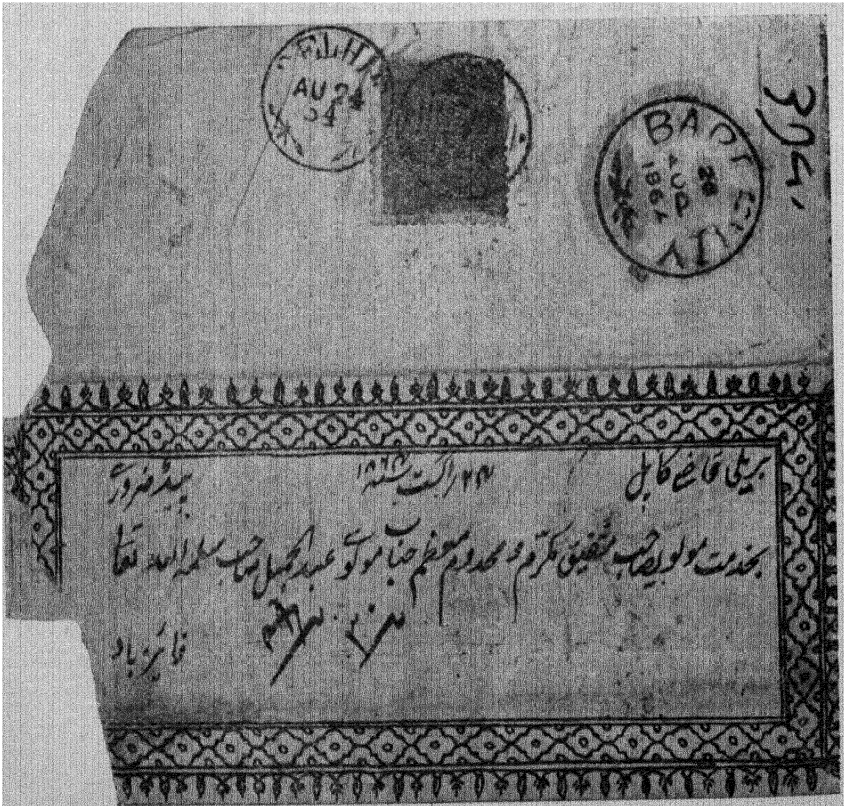 DELHI
AU 24
64
BAREILLY
28
AUG
1864
بریلی قاضے کا پل ۲۴ اگست ۱۸۶۴ پیڈ ضروری
بخدمت مولویصاحب شفیق مکرم و مخدوم معظم جناب مولوی عبدالجمیل صاحب سلمہ اللہ تعالی
فائز باد